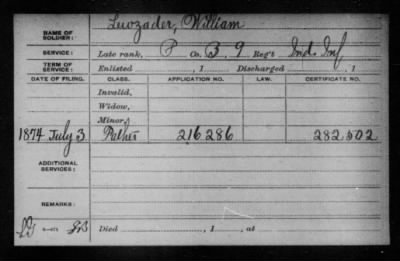 NAME OF SOLDIER: Luvzader, William
SERVICE: Late rank, P Co. B 9 Reg't Ind. Inf
TERM OF SERVICE: Enlisted , 1 Discharged , 1
DATE OF FILING. CLASS. APPLICATION NO. LAW. CERTIFICATE NO.
Invalid,
Widow,
Minor,
1874 July 3 Father 216286 282.502
ADDITIONAL SERVICES:
REMARKS:
Died , 1 , at